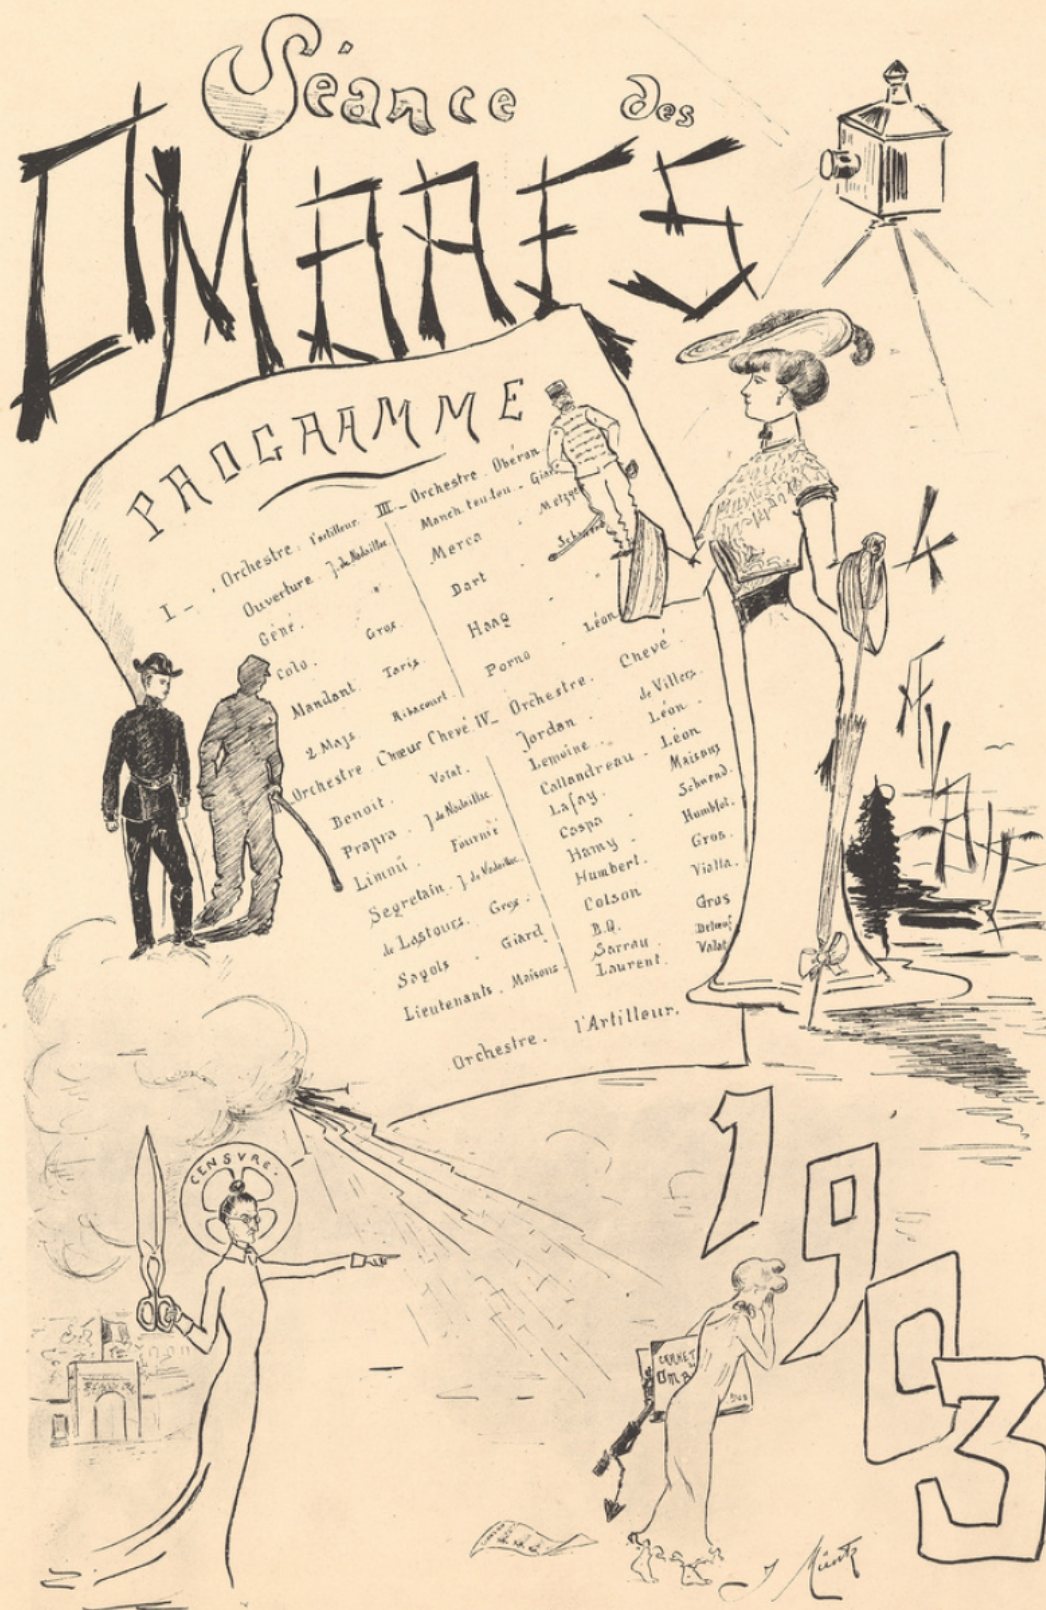 Séance des
OMBRES
PROGRAMME
I_ . Orchestre : l'artilleur.
Ouverture . J. de Nadaillac
Géné. "
Colo. Gros.
Mandant. Taris.
2 Majs Ribacourt.
Orchestre. Chœur Chevé
Benoit. Valat.
Prapra. J de Nadaillac.
Limoü. Fournié
Segretain. J de Nadaillac.
de Lastours. Gros.
Sagols . Giard
Lieutenants . Maisons.
III_ Orchestre . Obéron
Manch. tou-tou _ Giard
Merca . Metzger
Dart .
Haag
Porno . Léon
IV_ Orchestre. Chevé
Jordan . de Villers.
Lemoine . Léon.
Callandreau . Léon
Lafay. Maisons
Caspa Schwend.
Hamy . Humblot.
Humbert. Gros.
Colson Vialla.
B.Q. Gros
Sarrau .
Laurent. Valat
Orchestre. l'Artilleur.
CENSVRE.
CARNET
OMB
1903
J Müntz